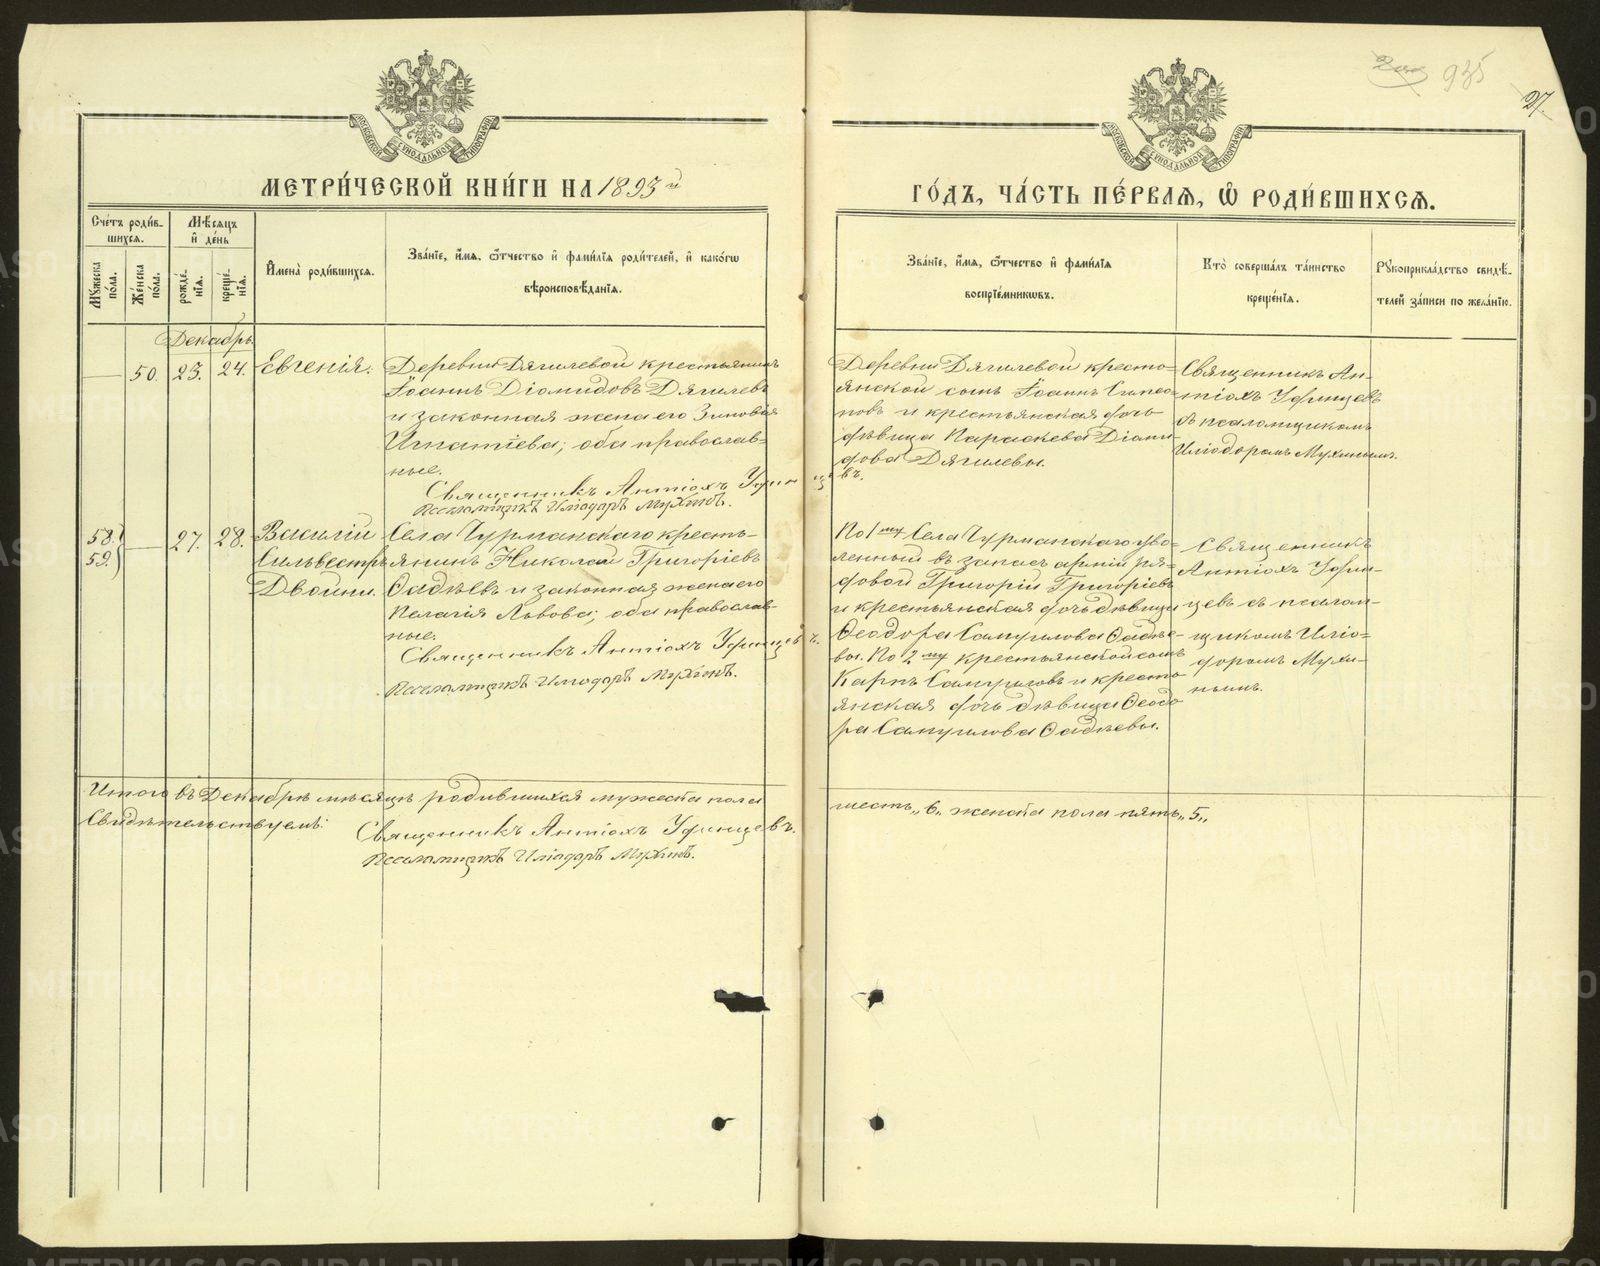 935
27.
МОСКОВСКОЙ СѴНОДАЛЬНОЙ ТИПОГРАФІИ
МОСКОВСКОЙ СѴНОДАЛЬНОЙ ТИПОГРАФІИ
МЕТРИ́ЧЕСКОЙ КНИ́ГИ НА 1893й
ГО́ДЪ, ЧА́СТЬ ПЕ́РВАѦ, Ѡ҆ РОДИ́ВШИХСѦ.
Сче́тъ роди́в-
шихсѧ.
Мꙋ́жеска по́ла.
Же́нска по́ла.
Мѣ́сѧцъ
и҆ де́нь
рожде́-
нїѧ.
креще́-
нїѧ.
И҆мена̀ роди́вшихсѧ.
Зва́нїе, и҆́мѧ, ѻ҆́тчество и҆ фами́лїѧ роди́телей, и҆ како́гѡ
вѣроисповѣ́данїѧ.
Зва́нїе, и҆́мѧ, ѻ҆́тчество и҆ фами́лїѧ
воспрїе́мникѡвъ.
Кто̀ соверша́лъ та́инство
креще́нїѧ.
Рꙋкоприкла́дство свидѣ́-
телей за́писи по жела́нїю.
Декабрь.
— 50. 23. 24. Евгенія.
Деревни Дягилевой крестьянинъ
Іоаннъ Діомидовъ Дягилевъ
и законная жена его Зиновія
Игнатіева; оба православ-
ные.
Священникъ Антіохъ Уфинцевъ.
Псаломщикъ Иліодоръ Мухинъ.
Деревни Дягилевой кресть-
янской сынъ Іоаннъ
и крестьянская дочь
дѣвица Параскева Діоми-
дова Дягилевы.
Священникъ Ан-
тіохъ Уфинцевъ
съ псаломщикомъ
Иліодоромъ Мухинымъ.
58.
59. — 27. 28. Василій
Сильвестръ
Двойни.
Села Чурманскаго кресть-
янинъ Николай Григоріевъ
Ѳадѣевъ и законная жена его
Пелагія Львова; оба православ-
ные.
Священникъ Антіохъ Уфинцевъ.
Псаломщикъ Иліодоръ Мухинъ.
По 1му Села Чурманскаго уво-
ленный въ запасъ арміи ря-
довой Григорій Григоріевъ
и крестьянская дочь дѣвица
Ѳеодора Самуилова Ѳадѣе-
вы. По 2му крестьянской сынъ
Карпъ Самуиловъ и кресть-
янская дочь дѣвица Ѳеодо-
ра Самуилова Ѳадѣевы.
Священникъ
Антіохъ Уфин-
цевъ съ псалом-
щикомъ Иліо-
доромъ Мухи-
нымъ.
Итого въ Декабрѣ мѣсяцѣ родившихся мужеска пола
шесть „6„ женска пола пять „5„
Свидѣтельствуемъ:
Священникъ Антіохъ Уфинцевъ.
Псаломщикъ Иліодоръ Мухинъ.
METRIKI.GASO-URAL.RU